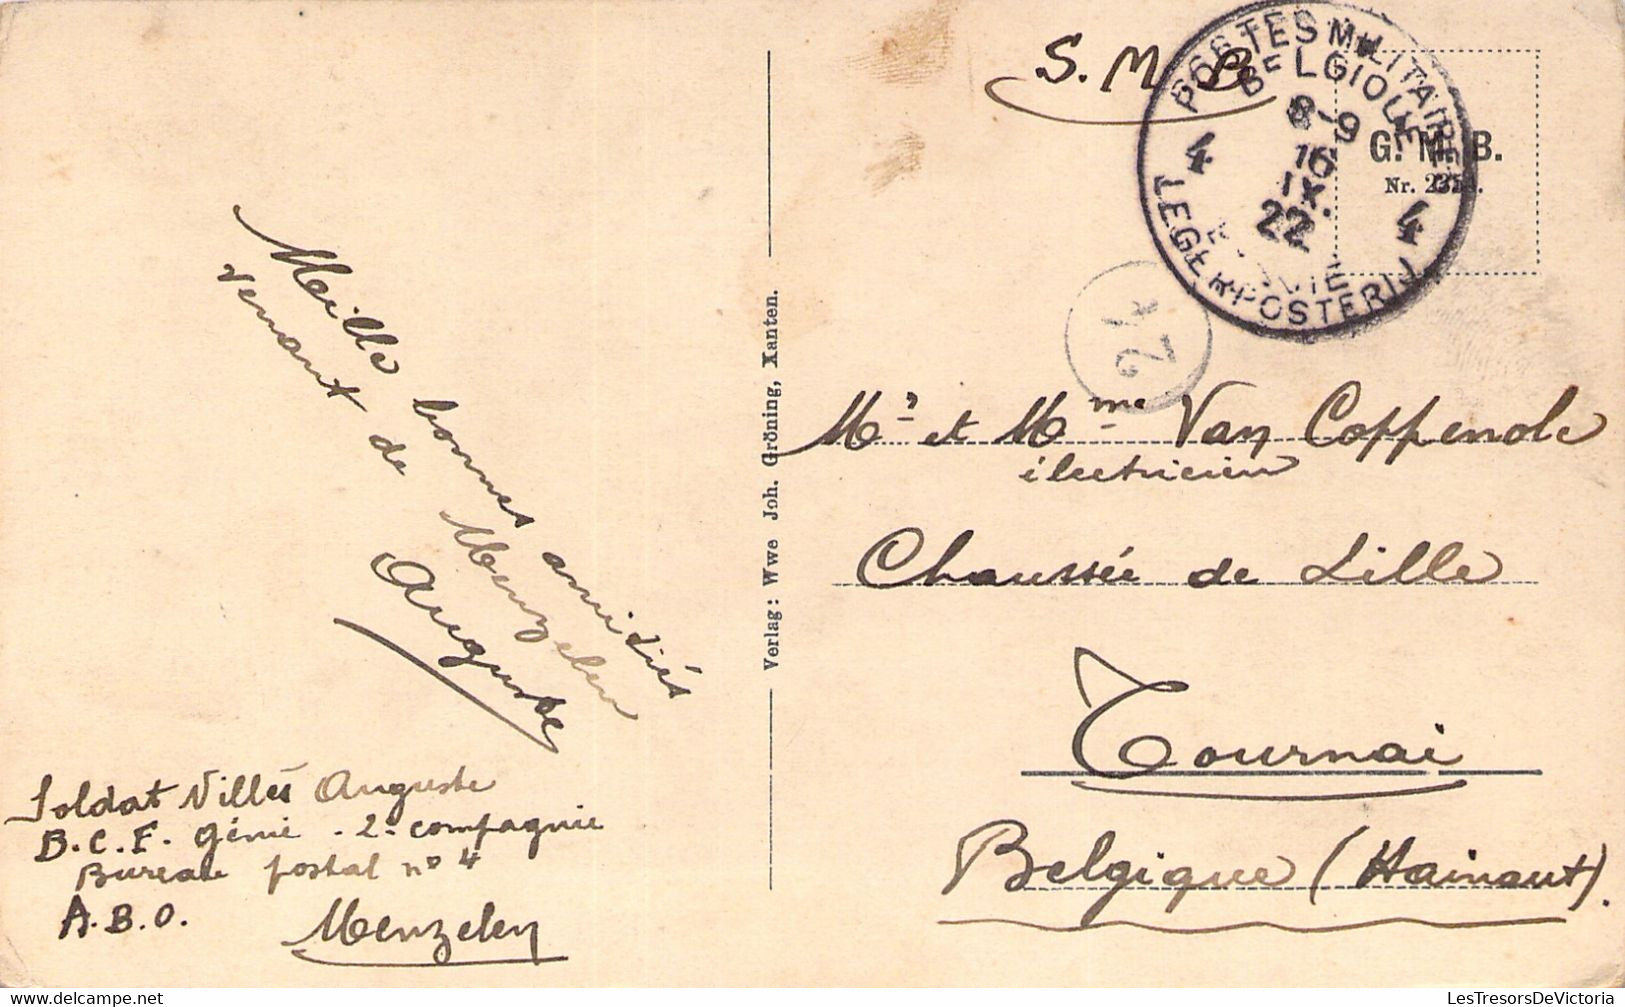 S. M. B
POSTES MILITAIRES
BELGIQUE
4 8-9 4
16
IX.
22
LEGERPOSTERIJ
G. M. B.
Nr.
Mille bonnes amitiés
venant de Menzelen
Auguste
Verlag: Wwe Joh. Gröning, Xanten.
Mr et Mme Van Coppenole
électricien
Chaussée de Lille
Tournai
Belgique (Hainaut).
Soldat Villés Auguste
B.C.F. Génie - 2e compagnie
Bureau postal no 4
A.B.O.
Menzelen
LesTresorsDeVictoria | LesTresorsDeVictoria